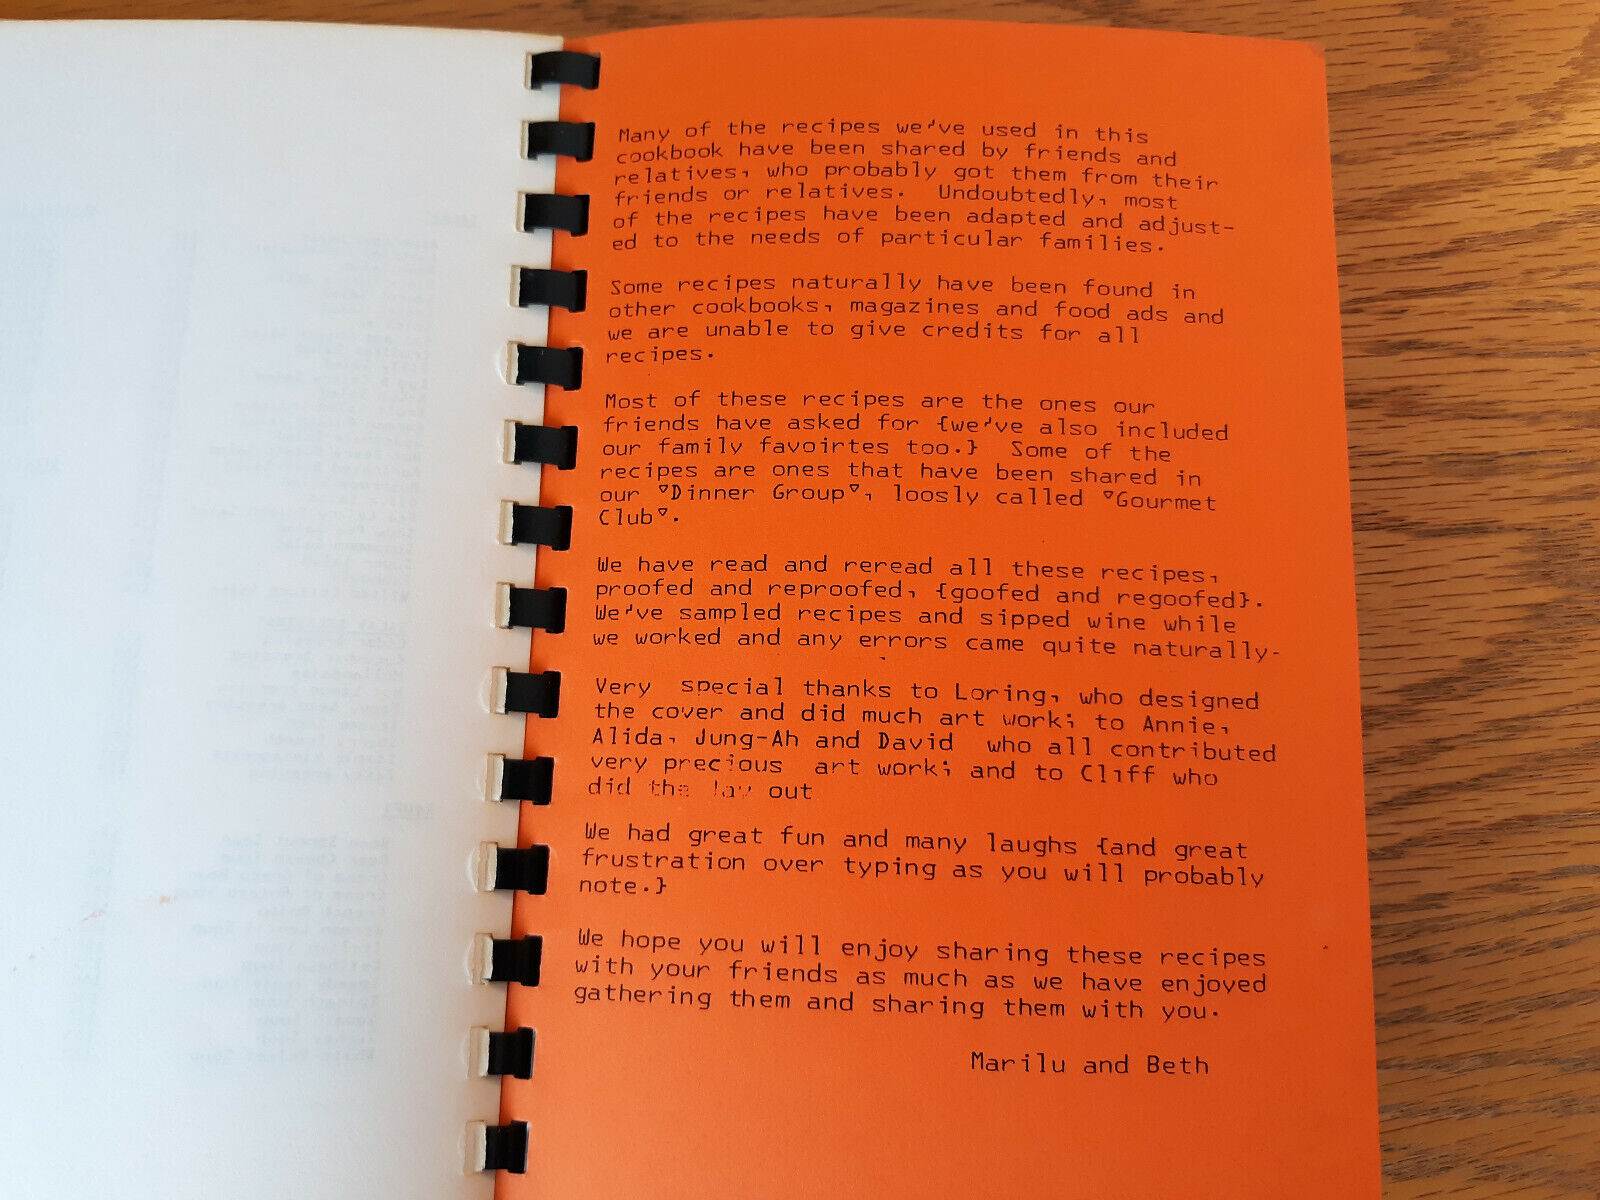 Many of the recipes we've used in this
cookbook have been shared by friends and
relatives, who probably got them from their
friends or relatives.  Undoubtedly, most
of the recipes have been adapted and adjust-
ed to the needs of particular families.
Some recipes naturally have been found in
other cookbooks, magazines and food ads and
we are unable to give credits for all
recipes.
Most of these recipes are the ones our
friends have asked for {we've also included
our family favoirtes too.}  Some of the
recipes are ones that have been shared in
our "Dinner Group", loosly called "Gourmet
Club".
We have read and reread all these recipes,
proofed and reproofed, {goofed and regoofed}.
We've sampled recipes and sipped wine while
we worked and any errors came quite naturally.
Very  special thanks to Loring, who designed
the cover and did much art work; to Annie,
Alida, Jung-Ah and David  who all contributed
very precious  art work; and to Cliff who
did the lay out
We had great fun and many laughs {and great
frustration over typing as you will probably
note.}
We hope you will enjoy sharing these recipes
with your friends as much as we have enjoyed
gathering them and sharing them with you.
Marilu and Beth